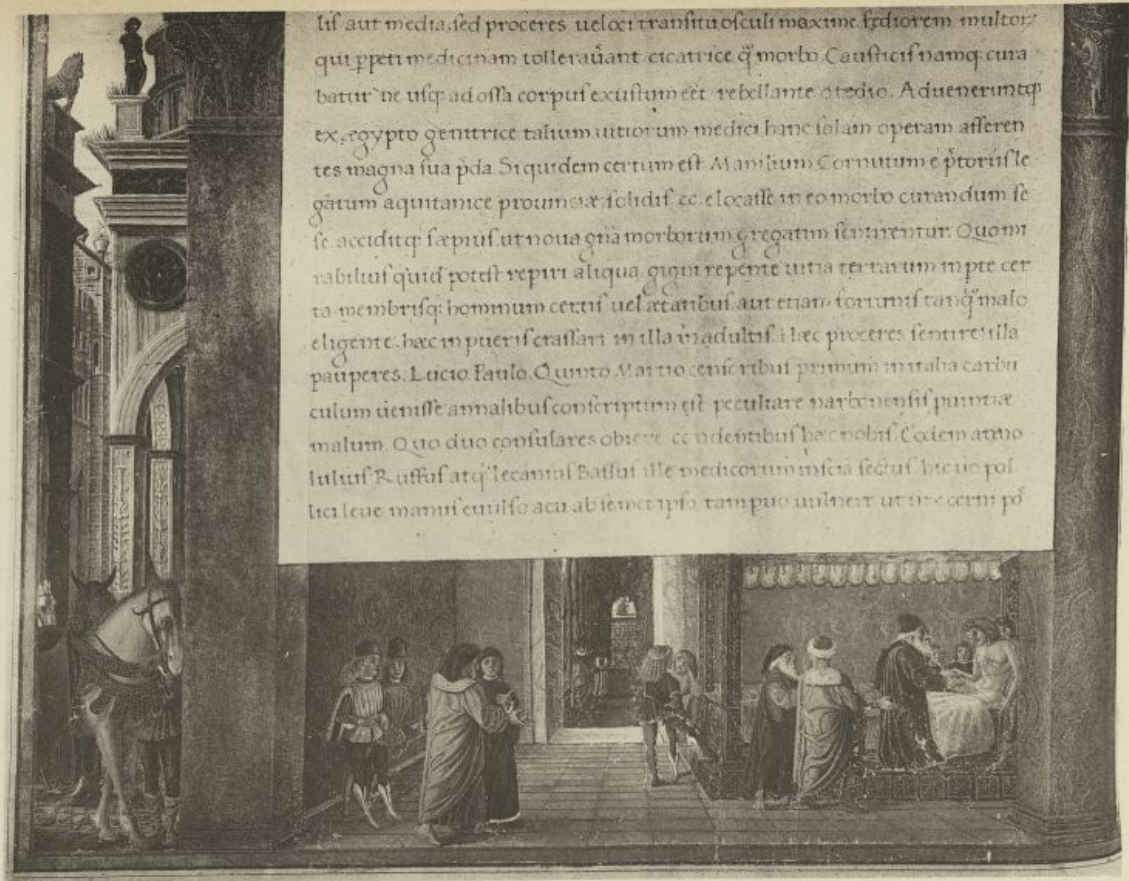 lis aut media, sed proceres ueloci transitu osculi maxime. fędiorem multor;
qui ꝑpeti medicinam tolleraũant cicatrice q̃ morbo. Causticis namq; cura
batur ne usq; ad ossa corpus exustum eēt rebellante tedio. Adueneruntq;
ex ęgypto genitrice talium uitiorum medici hanc solam operam afferen
tes magna sua p̃da. Siquidem certum est Manilium Cornutum e p̃toriis le
gatum aquitanice prouinciæ solidis cc. elocasse in eo morbo curandum se
se. acciditq; sæpius ut noua gñã morborum gregatim sentirentur. Quo mi
rabilius quid potest repiri aliqua gigni repente uitia terrarum in pte cer
ta membrisq; hominum certis uel ætatibus aut etiam fortunis tanq̃ malo
eligente. hæc in pueris crassari illa in adultis: hæc proceres sentire illa
pauperes. Lucio Paulo. Quinto Martio censoribus primum in italia carbũ
culum uenisse annalibus conscriptum est peculiare narbonensis puintiæ
malum. Quo duo consulares obiere condentibus hæc nobis. Eodem anno
Iulius Ruffus atq; lecanius Bassus ille medicorum inscia sectus. hic uo pol
lici leue manus euulso acu ab semet ipso tam puo uulnere ut cerni pos̃